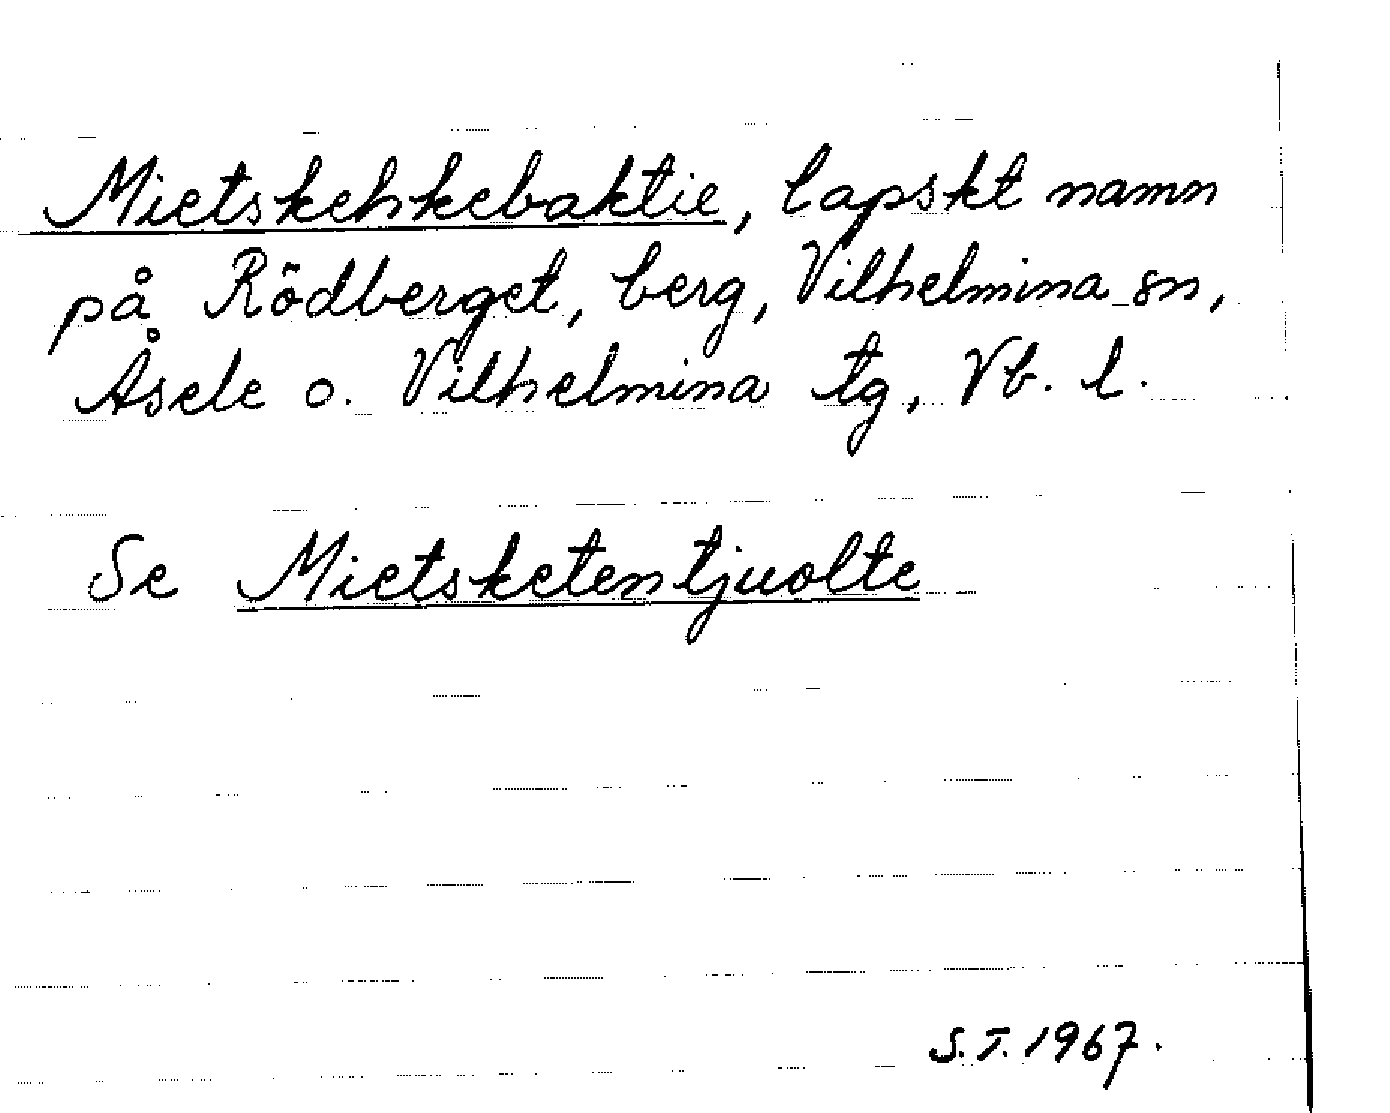 Mietskehkebaktie, lapskt namn
på Rödberget, berg, Vilhelmina sn,
Åsele o. Vilhelmina tg, Vb. l.
Se Mietsketentjuolte
S.T. 1967.